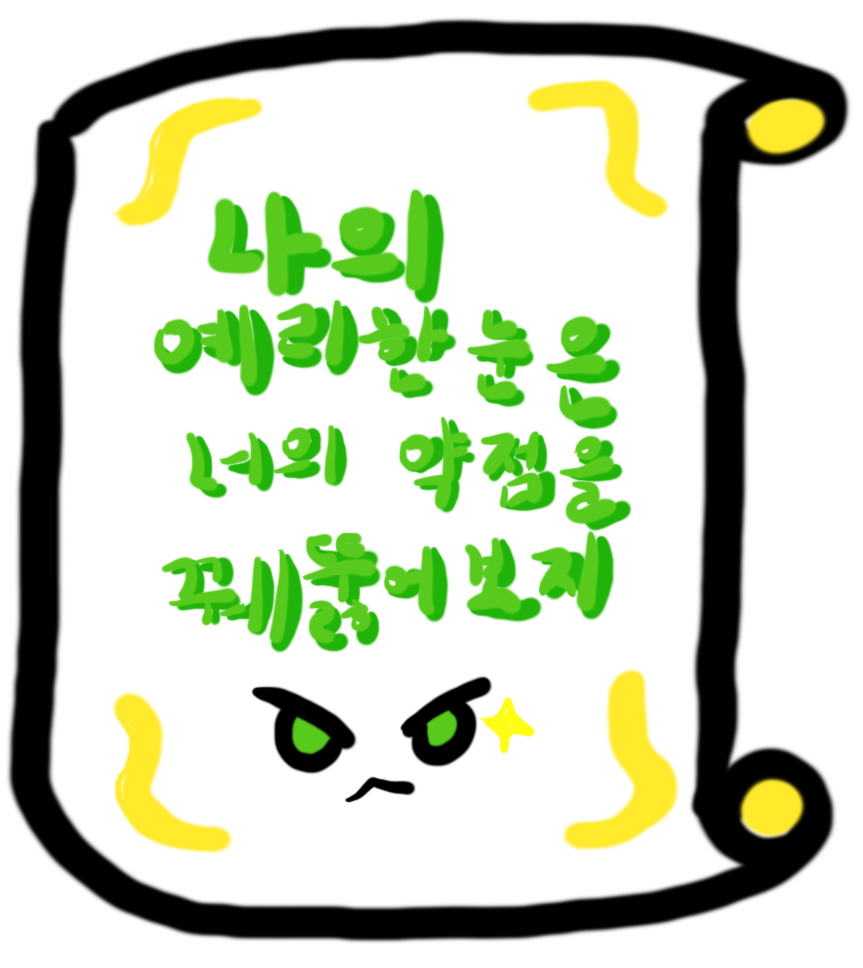 나의
예리한 눈은
너의 약점을
꿰뚫어 보지